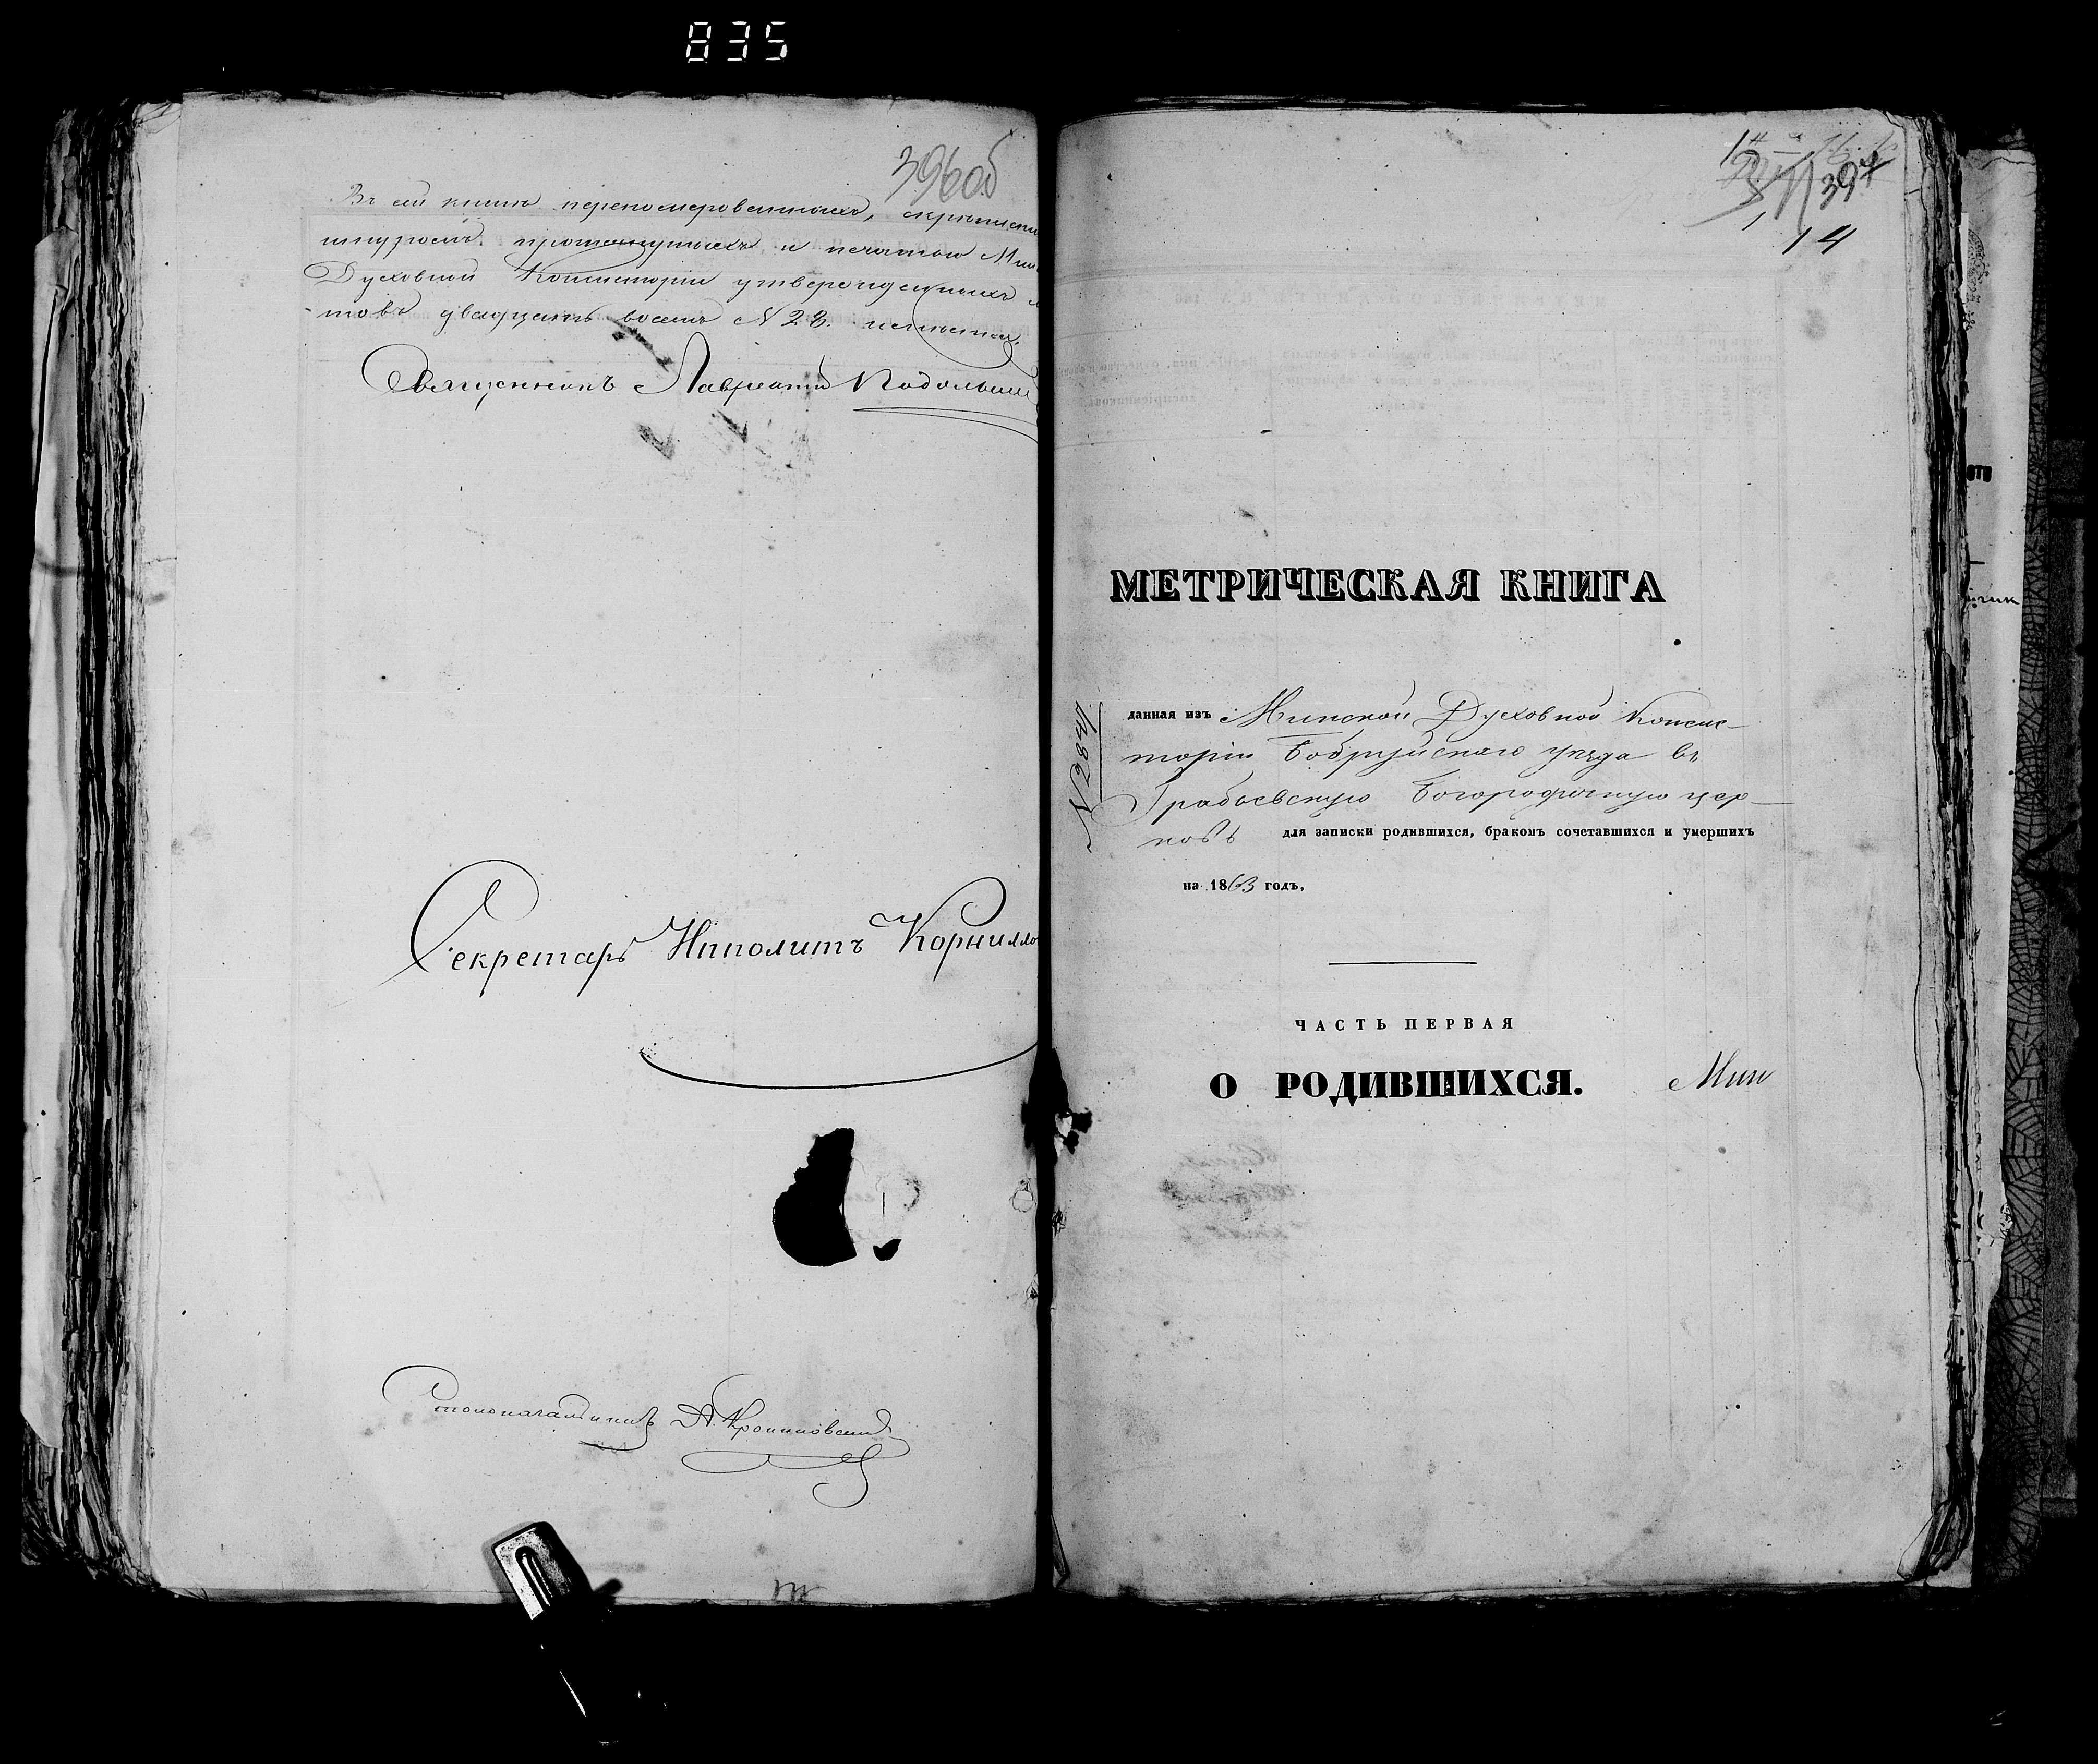 835
396об
Въ сей книгѣ перенумерованныхъ, скрѣплен
шнуромъ протянутыхъ и печатью Мин
Духовной Консисторіи утвержденныхъ
товъ двадцать восемь №28.
Священникъ Лаврентій Подольск
Секретарь Ипполитъ Корнилло
Столоначальникъ
397
14
МЕТРИЧЕСКАЯ КНИГА
данная изъ Минской Духовной Консис-
торіи Бобруйскаго уѣзда въ
Грабьевскую Богородичную цер-
ковь для записки родившихся, бракомъ сочетавшихся и умершихъ
на 1863 годъ,
ЧАСТЬ ПЕРВАЯ
О РОДИВШИХСЯ.
Мин